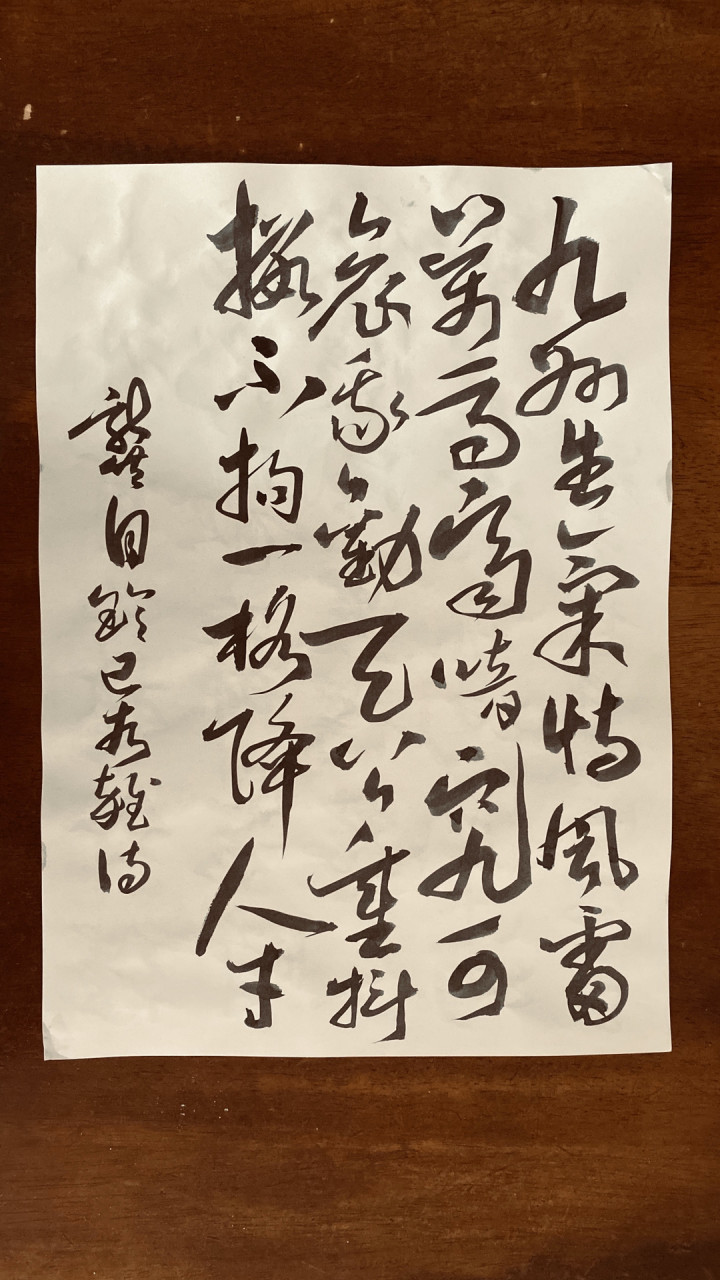 九州生氣恃風雷
萬馬齊喑究可
哀我勸天公重抖
擻不拘一格降人才
龔自珍己亥雜詩